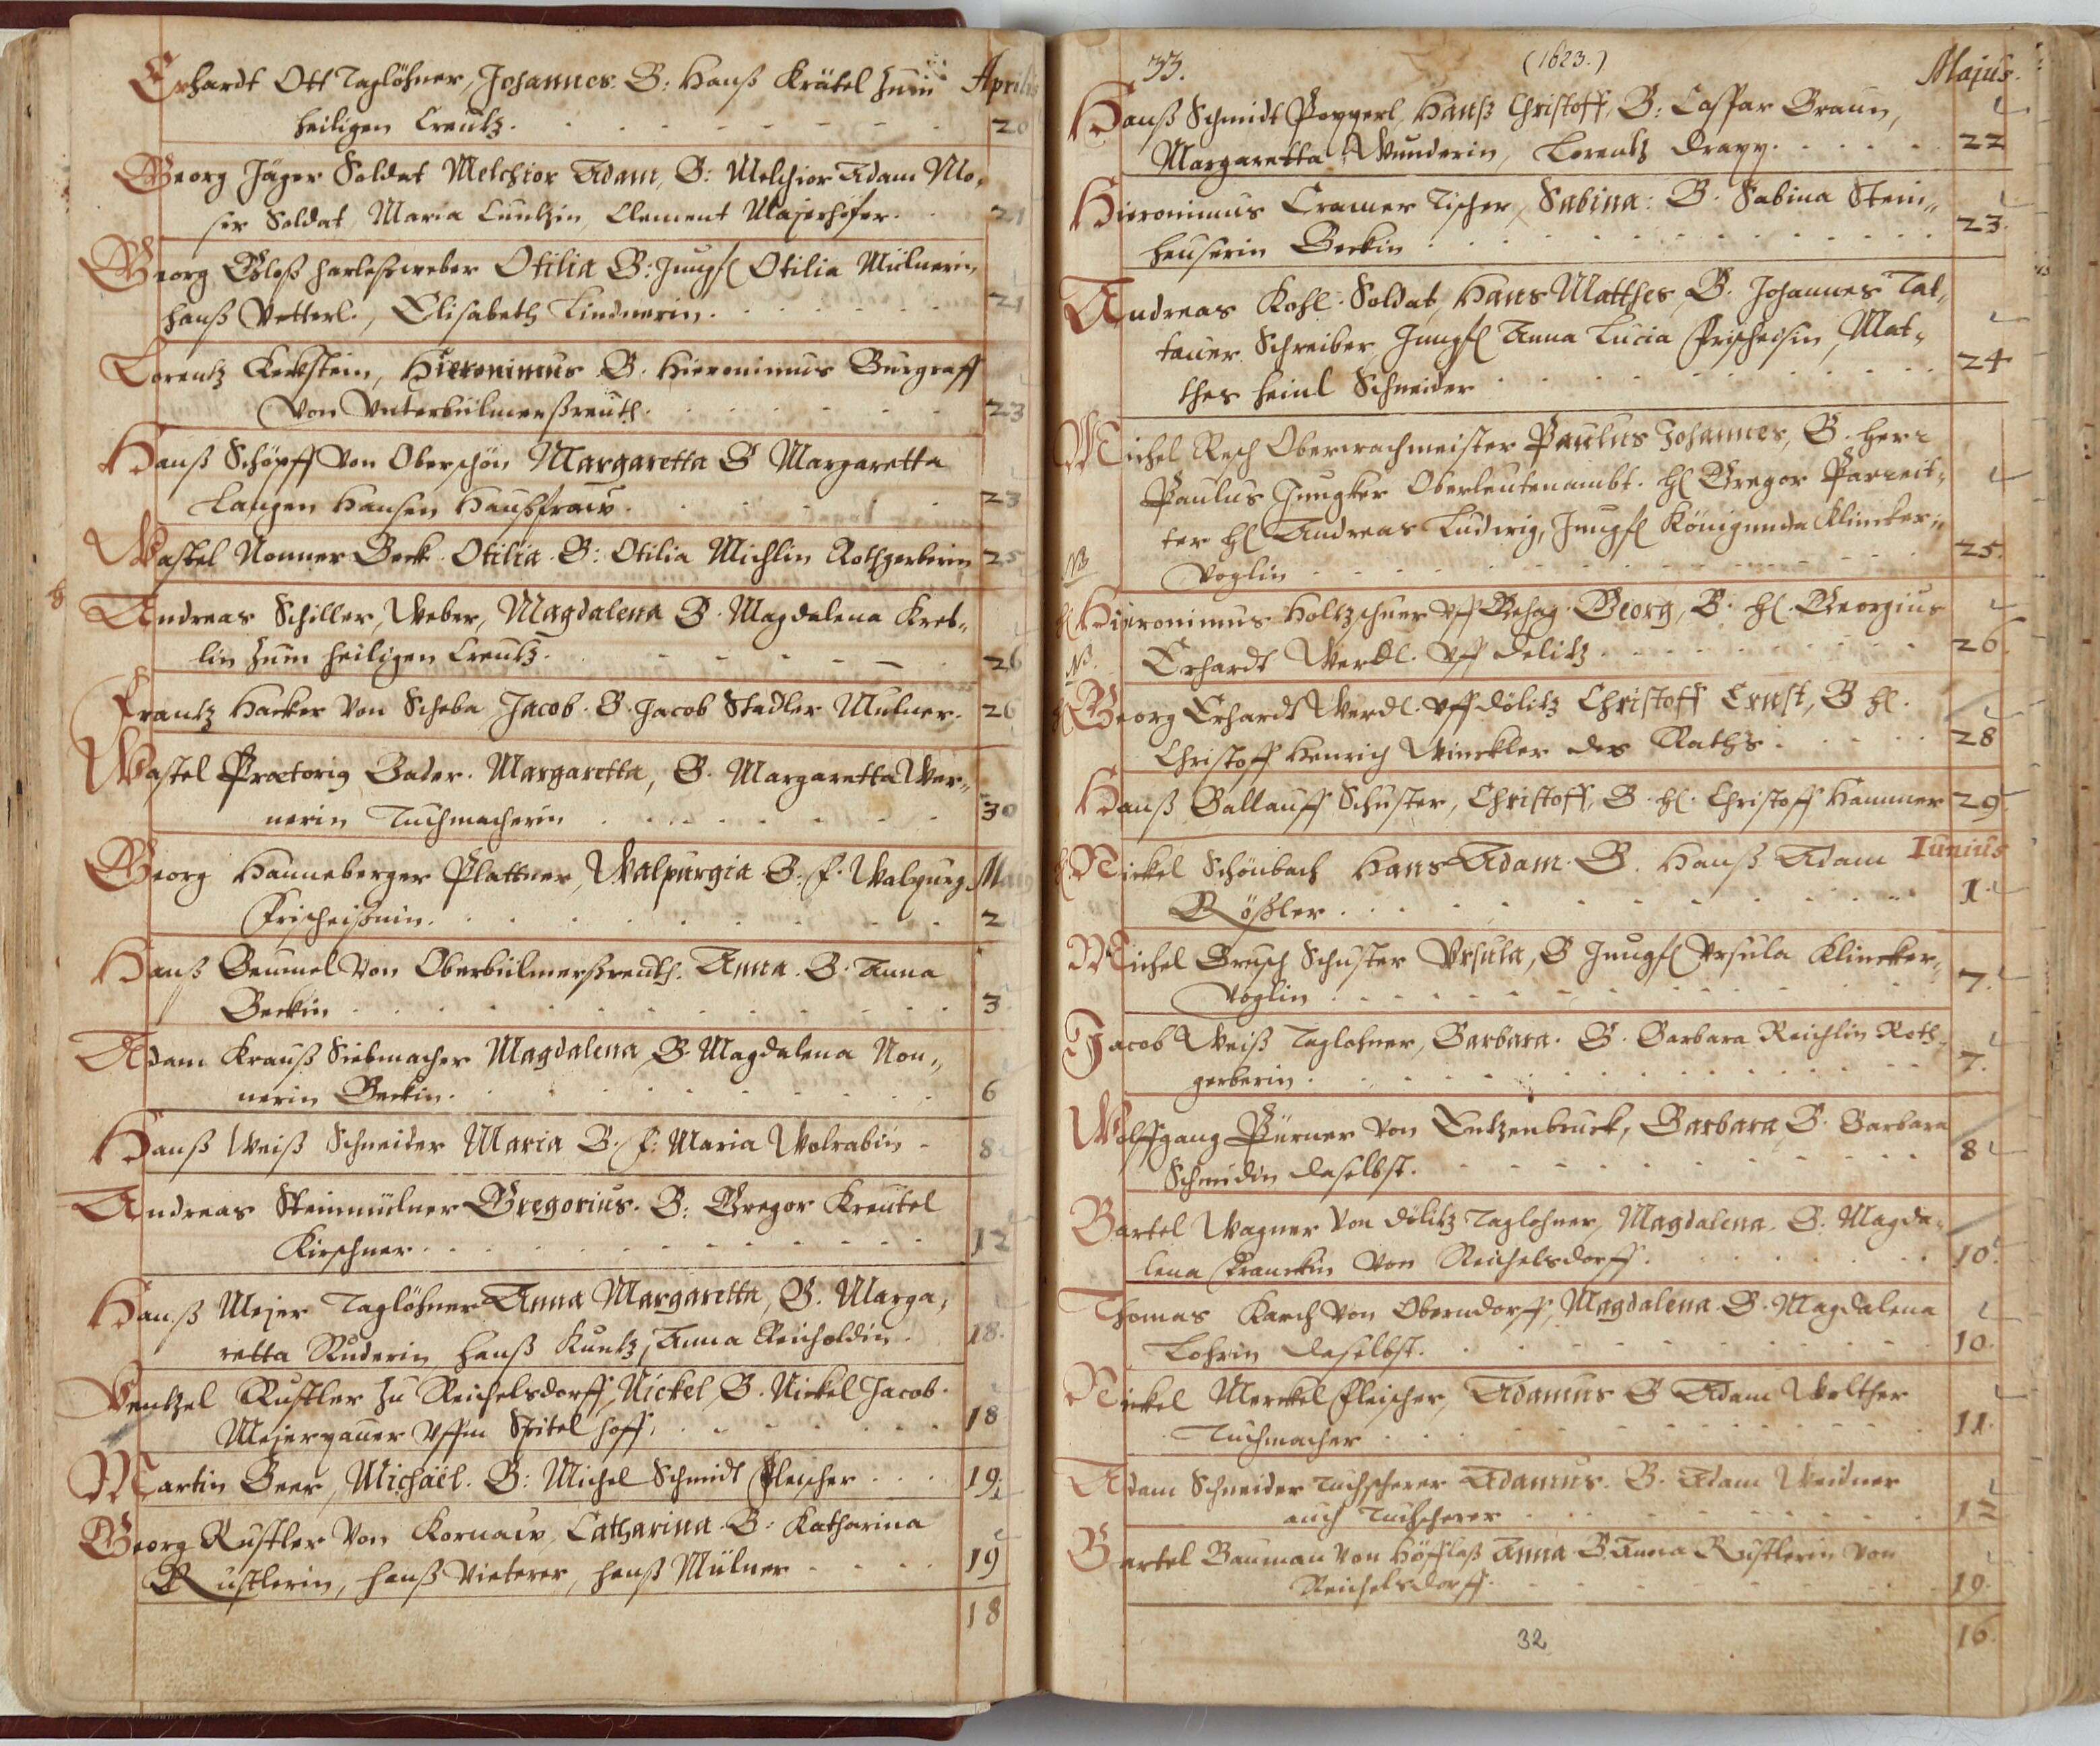 Aprilis
Erhardt Ott Taglöhner, Johannes. G: Hanß Krätel zum
heiligen Creutz. 20
Georg Jäger Soldat Melchior Adam, G: Melchior Adam Mo-
ser Soldat, Maria Cuntzin, Clement Majerhöfer. 21
Georg Gloß harlesweber Otilia G: Jungf Otilia Mülnerin,
hanß Vetterl., Elisabeth Lindnerin. 21
Lorentz Kerkstein, Hieronimus G. Hieronimus Burgraff
Von Unterbülmerßreuth. 23
Hanß Schöpff Von Oberschön Margaretta G Margaretta
Langen Hansen Haußfraw. 23
Wastel Nonner Beck. Otilia. G: Otilia Michlin Rothgerberin 25
Andreas Schiller, Weber, Magdalena G. Magdalena Kreb-
lin zum heiligen Creutz. 26
Frantz Hacker Von Scheba Jacob. G. Jacob Stadler Mülner. 26
Wastel Praetorig Bader. Margaretta, G. Margaretta Wer-
nerin Tuchmacherin 30
Georg Hanneberger Plattner, Walpurgia. G. f. Walpurg. Maj
Frischeisnin. 2
Hanß Beumel Von Oberbülmerßreuth. Anna. G. Anna
Beckin 3
Adam Krauß Siebmacher Magdalena G. Magdalena Non-
nerin Beckin. 6
Hanß Weiß Schneider Maria G. f: Maria Wolrabin 8
Andreas Steinmülner Gregorius. G: Gregor Kreutel
Kirschner. 12
Hanß Mejer Taglöhner Anna Margaretta, G. Marga,
retta Ruderin, hanß Kuntz, Anna Reicholdin. 18.
Wentzel Rustler zu Reichelsdorff, Nickel, G. Nickel Jacob.
Mejer pauer Uffm Spitel hoff. 18
Martin Beer, Michäel. G: Michel Schmidt Fleischer 19
Georg Rustler Von Kornaw, Catharina. G: Katharina
Rustlerin, hanß Vieterer, hanß Mülner 19
18
33. (1623.) Majus.
Hanß Schmidt Popperl, Hanß Christoff, G: Caspar Braun,
Margaretta Wunderin, Lorentz Drapp. 22
Hieronimus Cramer Tischer, Sabina: G. Sabina Stein-
heuserin Beckin 23.
Andreas Kohl. Soldat, Hans Matthes, G. Johannes Tat-
tauer Schreiber, Jungf Anna Lucia Frischeisin, Mat-
thes heinl Schneider 24
Michel Resch Oberwachmeister Paulus Johannes, G. Herr
Paulus Jungker Oberleutenambt. H Gregor Parreit-
ter H Andreas Ludwig, Jungf Königunda Klincker-
NB Voglin 25.
H Hieronimus Holtzschuer Uff Gehag. Georg, G. H. Georgius
NB. Erhardt Werdl. Uff Delitz 26
H Georg Erhardt Werdl. Uff Dölitz Christoff Ernst, G H.
Christoff Henrich Winckler des Raths. 28
Hanß Gallauff Schuster, Christoff, G. H. Christoff Hammer 29.
H Nickel Schönbach Hans Adam. G. Hanß Adam Iunius
Rößler. 1.
Michel Brusch Schuster Vrsula, G Jungf Vrsula Klincker-
Voglin 7.
Jacob Weiß Taglohner, Barbara. G. Barbara Reichlin Roth-
gerberin. 7.
Wolffgang Pürner Von Entzenbruck, Barbara G. Barbara
Schmidin daselbst. 8
Bartel Wagner Von Dölitz Taglohner, Magdalena. G. Magda-
lena Franckin Von Reichelsdorff. 10.
Thomas Karch Von Oberndorff, Magdalena. G. Magdalena
Lohrin daselbst. 10.
Nickel Merckel Fleischer, Adamus G Adam Wolther
Tuchmacher 11.
Adam Schneider Tuchscherer Adamus. G. Adam Weidner
auch Tuchscherer 12
Bartel Bauman Von Höfflaß Anna G Anna Rustlerin Von
Reichelsdorff. 19.
16.
32